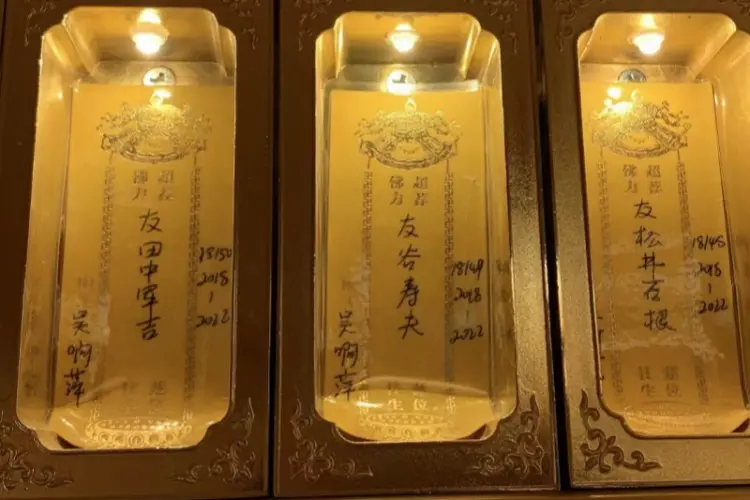 佛力
超荐
友田中军吉
18/50
2018
|
2022
吴啊萍
佛力
超荐
友谷寿夫
18/49
2018
|
2022
吴啊萍
往生
莲位
佛力
超荐
友松井石根
18/48
2018
|
2022
往生
莲位